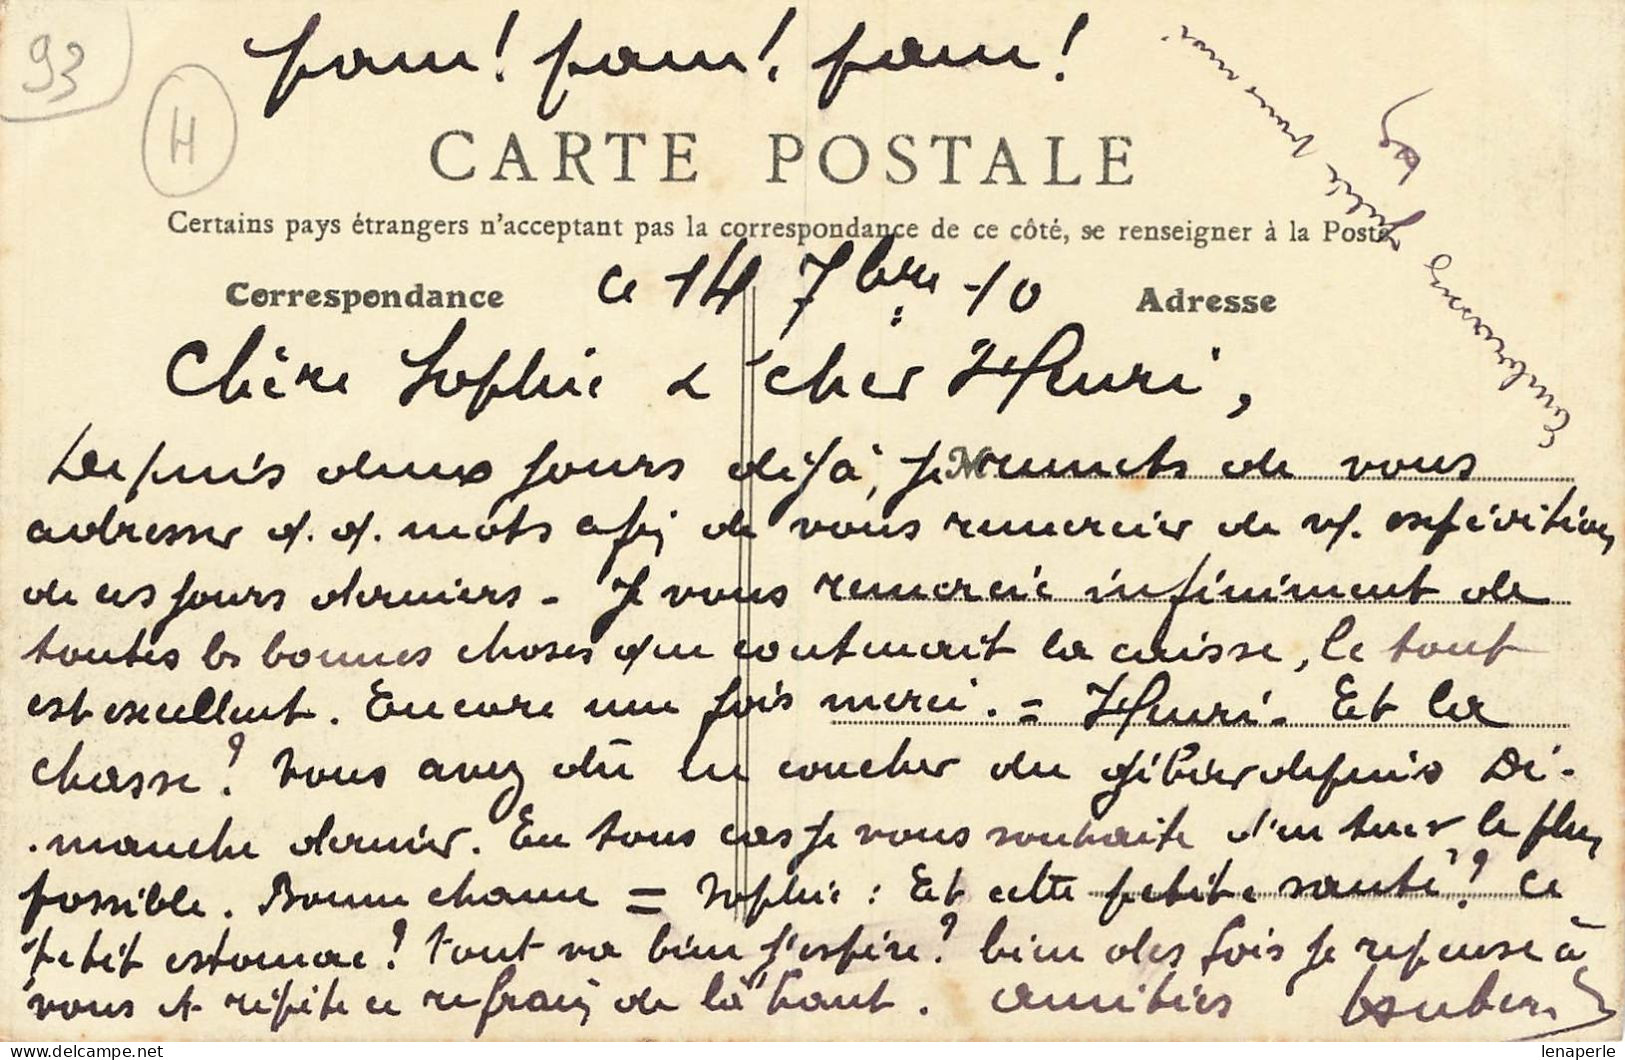 93
H
pan! pan! pan!
CARTE POSTALE
Certains pays étrangers n'acceptent pas la correspondance de ce côté, se renseigner à la Poste
Correspondance
ce 14 7bre -10
Adresse
Chère Sophie & cher Henri,
Depuis deux jours déjà, je remets de vous
M
adresser q. q. mots afin de vous remercier de v/. expédition
de ces jours derniers - Je vous remercie infiniment de
toutes les bonnes choses que contenait la caisse, le tout
est excellent. Encore une fois merci. = Henri - Et la
chasse? Vous avez dû en coucher du gibier depuis Di-
-manche dernier. En tous cas je vous souhaite d'en tuer le plus
possible. Bonne chance = Sophie: Et cette petite santé? Ce
petit estomac? tout va bien j'espère? bien des fois je repense à
vous et répète ce refrain de là haut. Amitiés Hubert
Julie vous